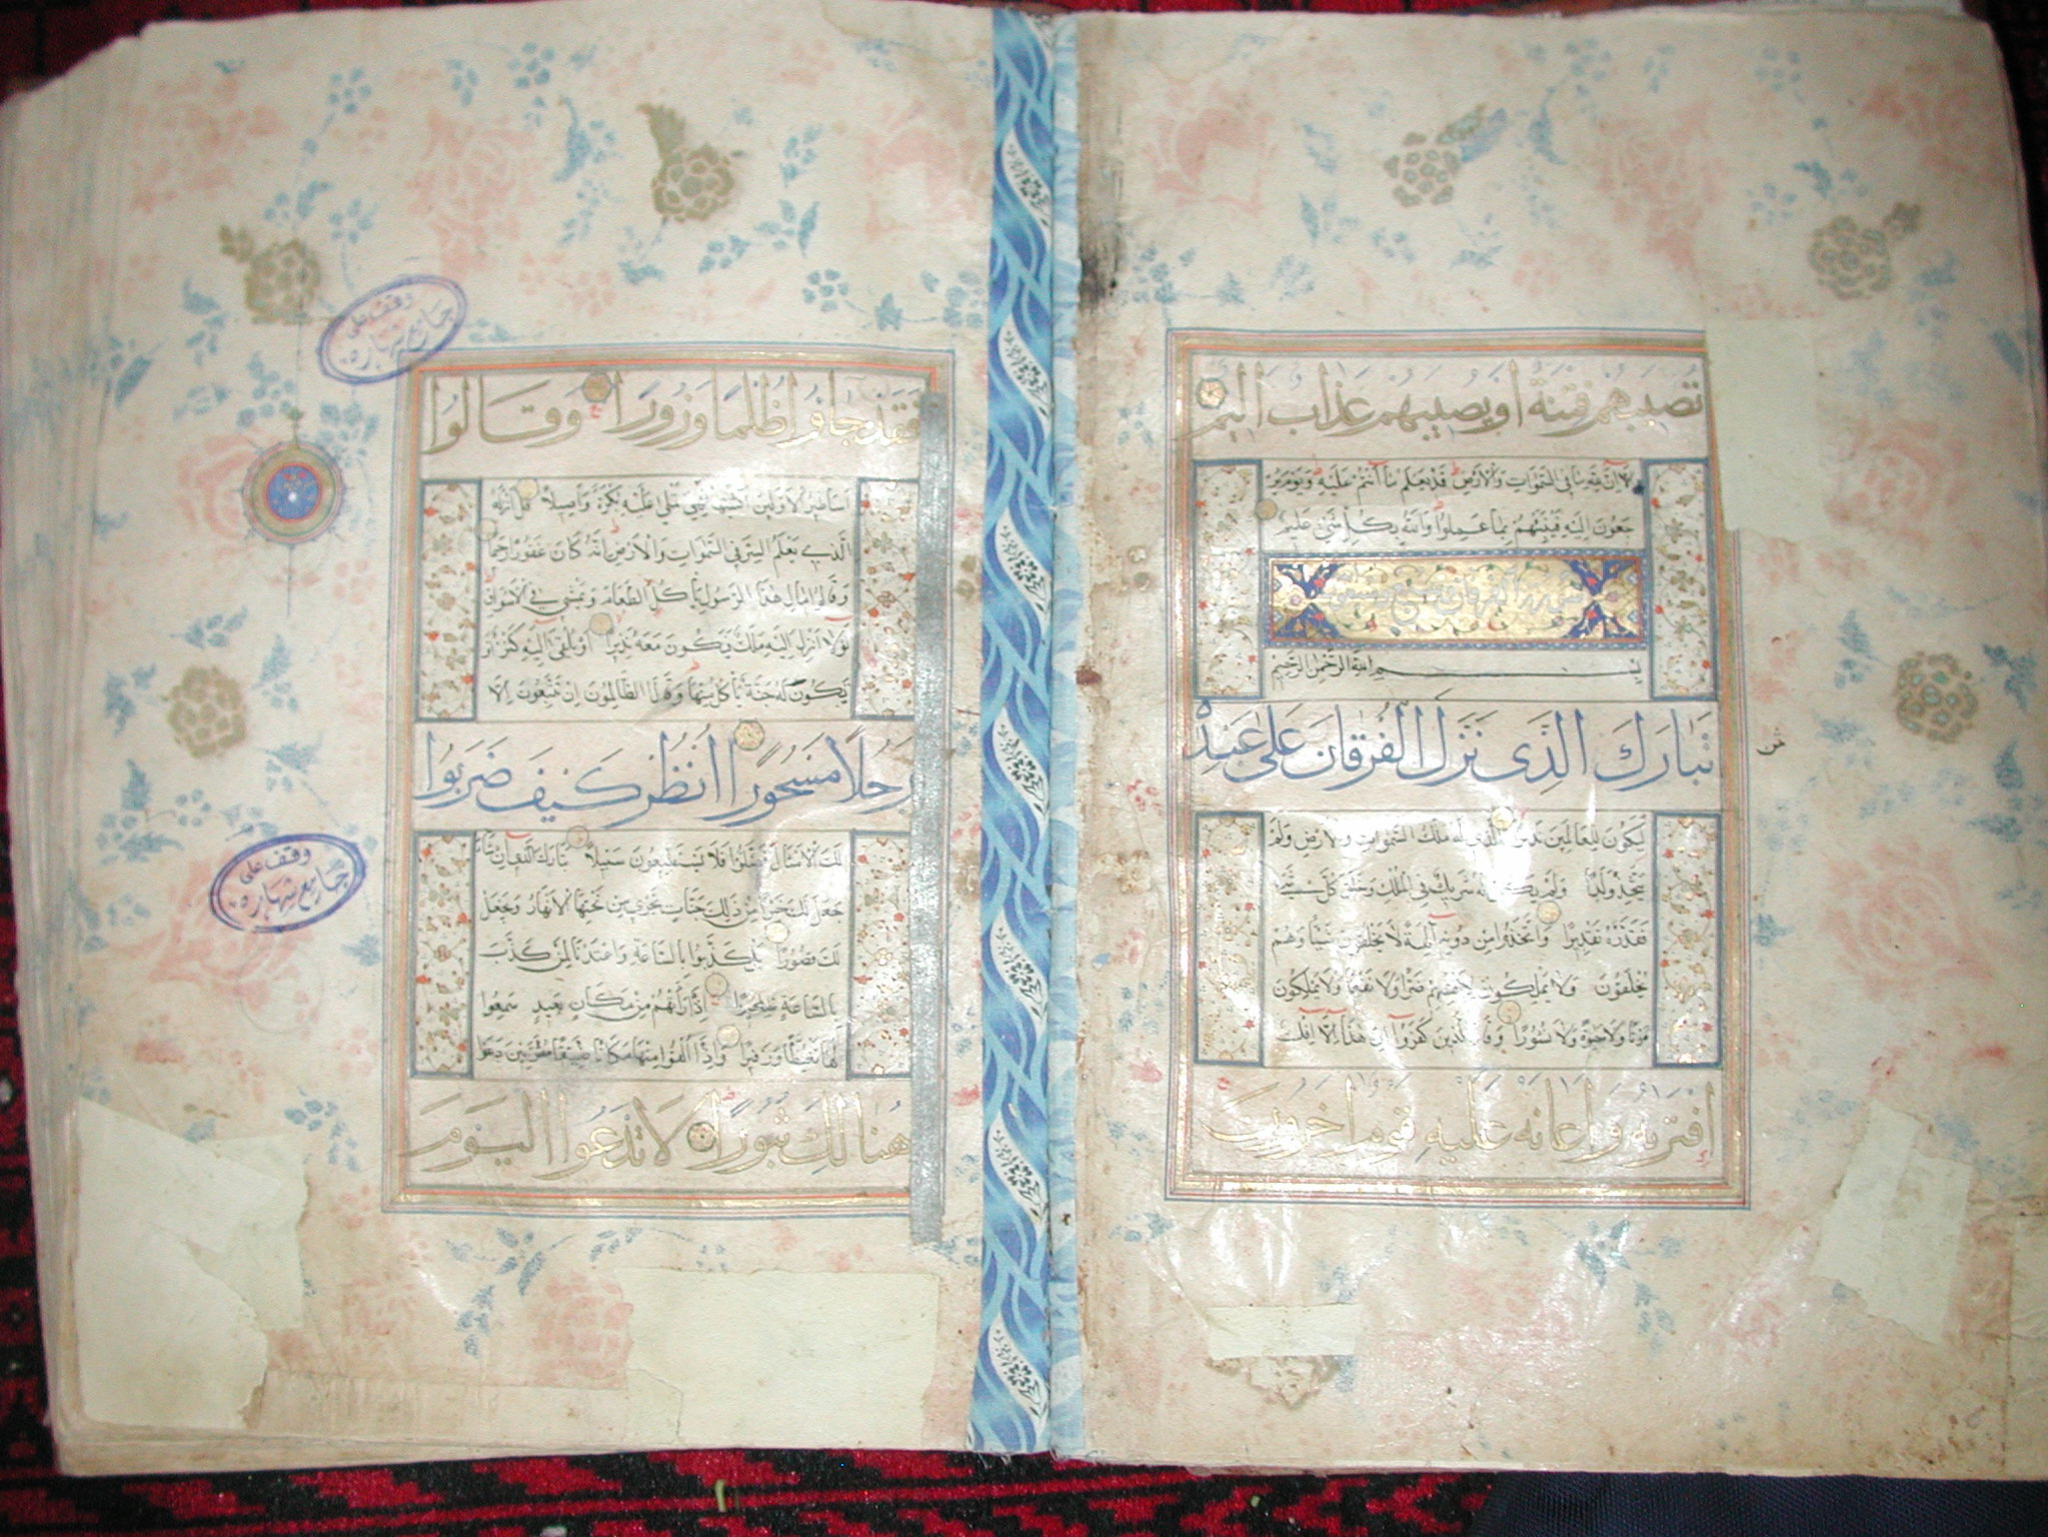 تصيبهم فتنة أو يصيبهم عذاب أليم
ألا إن لله ما في السموات والأرض قد يعلم ما أنتم عليه ويوم ير
جعون إليه فينبئهم بما عملوا والله بكل شيء عليم
بسم الله الرحمن الرحيم
تبارك الذي نزل الفرقان على عبده
ليكون للعالمين نذيرا الذي له ملك السموات والأرض ولم
يتخذ ولدا ولم يكن له شريك في الملك وخلق كل شيء
فقدره تقديرا واتخذوا من دونه آلهة لا يخلقون شيئا وهم
يخلقون ولا يملكون لأنفسهم ضرا ولا نفعا ولا يملكون
موتا ولا حيوة ولا نشورا وقال الذين كفروا إن هذا إلا إفك
افتريه وأعانه عليه قوم آخرون
فقد جاؤا ظلما وزورا وقالوا
أساطير الأولين اكتتبها فهي تملى عليه بكرة وأصيلا قل أنزله
الذي يعلم السر في السموات والأرض إنه كان غفورا رحيما
وقالوا مال هذا الرسول يأكل الطعام ويمشي في الأسواق
لولا أنزل إليه ملك فيكون معه نذيرا أو يلقى إليه كنز أو
تكون له جنة يأكل منها وقال الظالمون إن تتبعون إلا
رجلا مسحورا انظر كيف ضربوا
لك الأمثال فضلوا فلا يستطيعون سبيلا تبارك الذي إن شاء
جعل لك خيرا من ذلك جنات تجري من تحتها الأنهار ويجعل
لك قصورا بل كذبوا بالساعة وأعتدنا لمن كذب
بالساعة سعيرا إذا رأتهم من مكان بعيد سمعوا
لها تغيظا وزفيرا وإذا ألقوا منها مكانا ضيقا مقرنين دعوا
هنالك ثبورا لا تدعوا اليوم
وقف على
جامع شهاره
وقف على
جامع شهاره